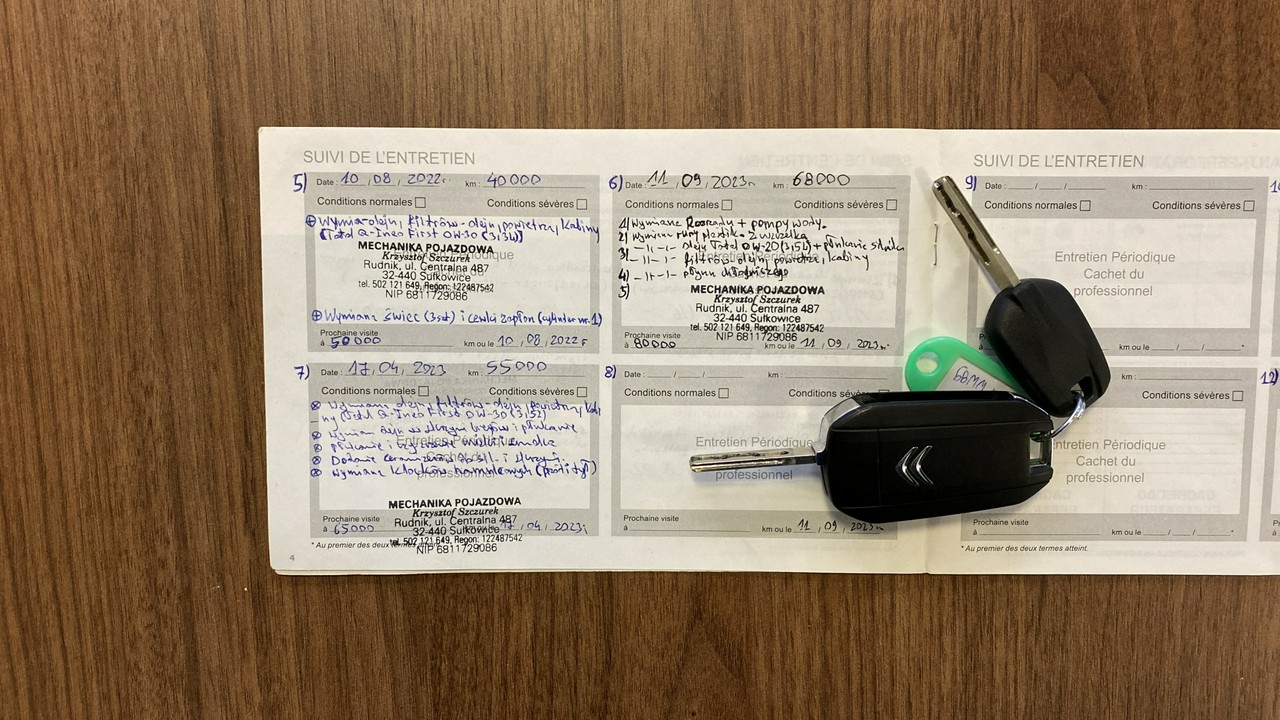 SUIVI DE L'ENTRETIEN
5) Date : 10, 08, 2022r. km : 40 000
Conditions normales Conditions sévères
Wymiana oleju, filtrów - oleju, powietrza, kabiny
(Total Q-Ineo First 0W-30 (3,15l))
Entretien Périodique
MECHANIKA POJAZDOWA
Krzysztof Szczurek
Rudnik, ul. Centralna 487
32-440 Sułkowice
tel. 502 121 649, Regon: 122487542
NIP 6811729086
Wymiana świec (3szt) i cewki zapłon. (cylinder nr. 1)
Prochaine visite
à 50000 km ou le 10, 08, 2022 r
6) Date : 11, 09, 2023r. km : 68000
Conditions normales Conditions sévères
1) Wymiana Rozrządu + pompy wody.
2) Wymiana rury plastik. z
2) -11-1- oleju Total 0W-20 (3,15l) + płukanie silnika
3) -11-1- filtrów oleju, powietrza, kabiny
4) -11-1- płynu chłodniczego
5)
MECHANIKA POJAZDOWA
Krzysztof Szczurek
Rudnik, ul. Centralna 487
32-440 Sułkowice
tel. 502 121 649, Regon: 122487542
NIP 6811729086
Prochaine visite
à 80000 km ou le 11, 09, 2023r. *
7) Date : 17, 04, 2023 km : 55 000
Conditions normales Conditions sévères
Wymiana oleju, filtrów - oleju, powietrza,
(Total Q-Ineo First 0W-30 (3,15l)
Wymian oleju w skrzyni biegów i płukanie
Płukanie i
Entretien Périodique
Dodanie
Wymiana klocków hamulcowych (przód i tył)
MECHANIKA POJAZDOWA
Krzysztof Szczurek
Rudnik, ul. Centralna 487
32-440 Sułkowice
tel. 502 121 649, Regon: 122487542
NIP 6811729086
Prochaine visite
à 65000 km ou le 17, 04, 2023
* Au premier des deux termes
4
8) Date : / / km :
Conditions normales Conditions sévères
Entretien Périodique
professionnel
Prochaine visite
à km ou le 11, 09, 2023r.
SUIVI DE L'ENTRETIEN
9) Date : / / km :
Conditions normales Conditions sévères
Entretien Périodique
Cachet du
professionnel
km ou le / / *
km :
Conditions sévères
Entretien Périodique
Cachet du
professionnel
Prochaine visite
à km ou le / / *
* Au premier des deux termes atteint.
12)